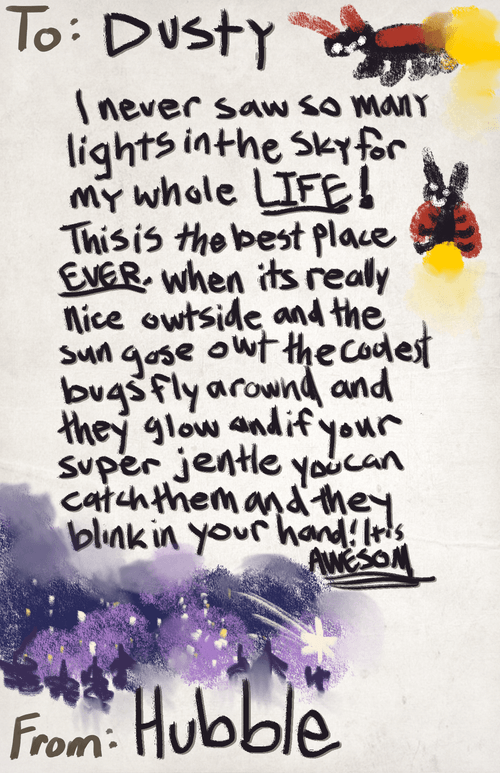 To: Dusty
I never saw so many
lights in the sky for
my whole LIFE!
This is the best place
EVER. when its really
nice owtside and the
sun gose owt the coolest
bugs fly arownd and
they glow and if your
super jentle you can
catch them and they
blink in your hand! It's
AWESOM
From: Hubble